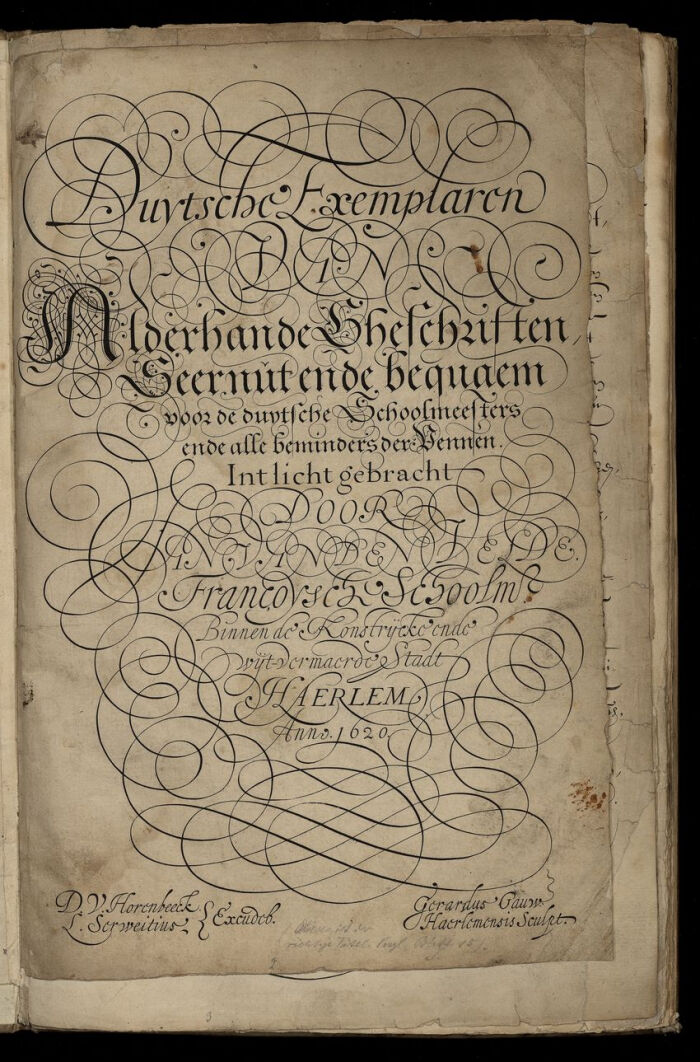 Duytsche Exemplaren
VAN
Alderhande Gheschriften,
Seer nut ende bequaem
voor de duytsche Schoolmeesters
ende alle beminders der Pennen.
Int licht gebracht
DOOR
JAN VANDEN VELDE.
Françoysche Schoolmr.
Binnen de Konstrijcke ende
wijt-vermaerde Stadt
HAERLEM
Anno. 1620.
D. V. Horenbeeck
L. Serweitius Excudeb.
Gerardus Gauw.
Haerlemensis Sculpt.